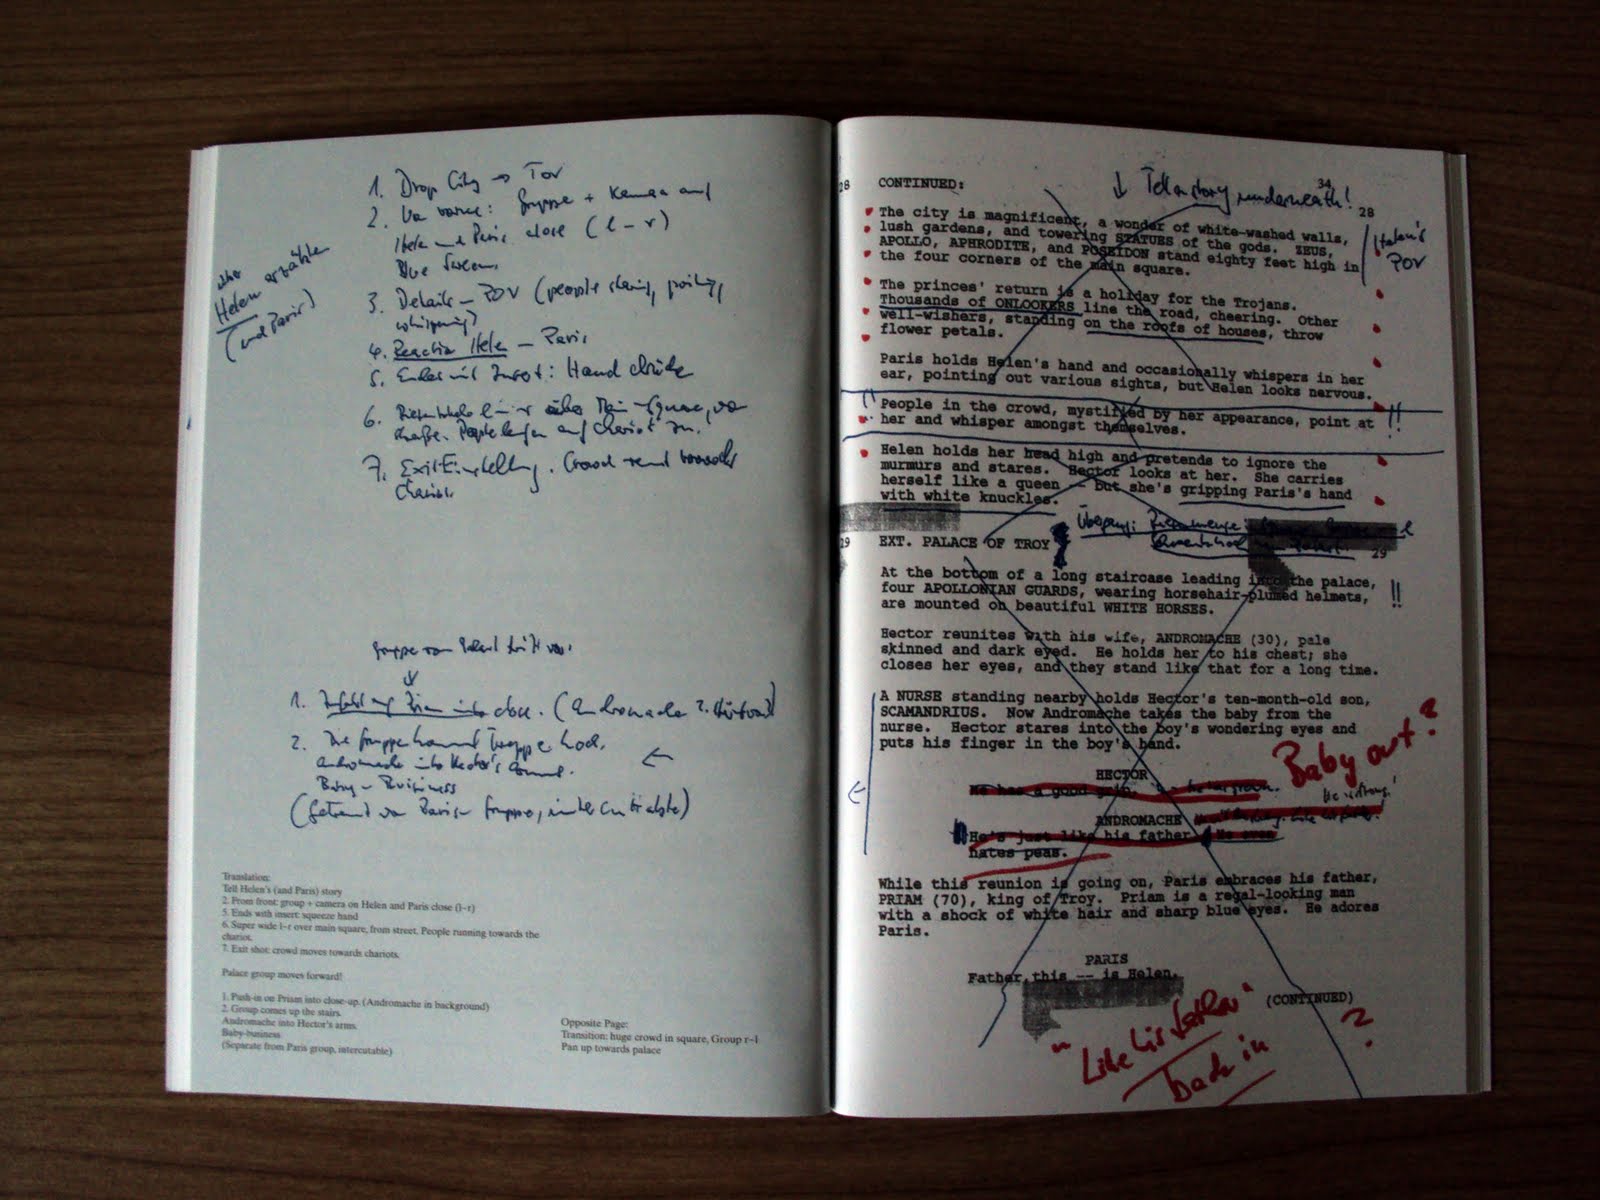 1. Drop City → Tor
2. Von vorne: Gruppe + Kamera auf
Helen und Paris close (l – r)
Blue Screen.
Helen erzählen
(und Paris)
3. Details – POV (people staring, pointing,
whispering)
4. Reaction Helen – Paris
5. Endet mit Insert: Hand
6. l – r über Main Square, von
Straße. People laufen auf Chariot zu.
7. Exit Einstellung. Crowd
Chariots
Gruppe vom Palast tritt vor!
↓
1. Priam into close. (Andromache i. Hintergrund)
2. Die Gruppe kommt Treppe hoch.
Andromache into Hector's Arme. ←
Baby – Business
(Getrennt von Paris – Gruppe, intercuttable)
Translation:
Tell Helen's (and Paris) story
2. From front: group + camera on Helen and Paris close (l–r)
5. Ends with insert: squeeze hand
6. Super wide l–r over main square, from street. People running towards the
chariot.
7. Exit shot: crowd moves towards chariots.
Palace group moves forward!
1. Push-in on Priam into close-up. (Andromache in background)
2. Group comes up the stairs.
Andromache into Hector's arms.
Baby-business
(Separate from Paris group, intercutable)
Opposite Page:
Transition: huge crowd in square, Group r–l
Pan up towards palace
↓ Tell a story underneath!
34
28 CONTINUED: 28
The city is magnificent, a wonder of white-washed walls,
lush gardens, and towering STATUES of the gods. ZEUS,
APOLLO, APHRODITE, and POSEIDON stand eighty feet high in
the four corners of the main square.
Helen's
POV
The princes' return is a holiday for the Trojans.
Thousands of ONLOOKERS line the road, cheering. Other
well-wishers, standing on the roofs of houses, throw
flower petals.
Paris holds Helen's hand and occasionally whispers in her
ear, pointing out various sights, but Helen looks nervous.
People in the crowd, mystified by her appearance, point at !!
her and whisper amongst themselves.
Helen holds her head high and pretends to ignore the
murmurs and stares. Hector looks at her. She carries
herself like a queen -- but she's gripping Paris's hand
with white knuckles.
Übergang:
29 EXT. PALACE OF TROY 29
At the bottom of a long staircase leading into the palace,
four APOLLONIAN GUARDS, wearing horsehair-plumed helmets, !!
are mounted on beautiful WHITE HORSES.
Hector reunites with his wife, ANDROMACHE (30), pale
skinned and dark eyed. He holds her to his chest; she
closes her eyes, and they stand like that for a long time.
A NURSE standing nearby holds Hector's ten-month-old son,
SCAMANDRIUS. Now Andromache takes the baby from the
nurse. Hector stares into the boy's wondering eyes and
puts his finger in the boy's hand.
Baby out?
HECTOR
He has a good grip.
He's strong!
ANDROMACHE
He's just like his father. He even
hates peas.
While this reunion is going on, Paris embraces his father,
PRIAM (70), king of Troy. Priam is a regal-looking man
with a shock of white hair and sharp blue eyes. He adores
Paris.
PARIS
Father, this -- is Helen.
(CONTINUED)
"Like his father"
back in
?